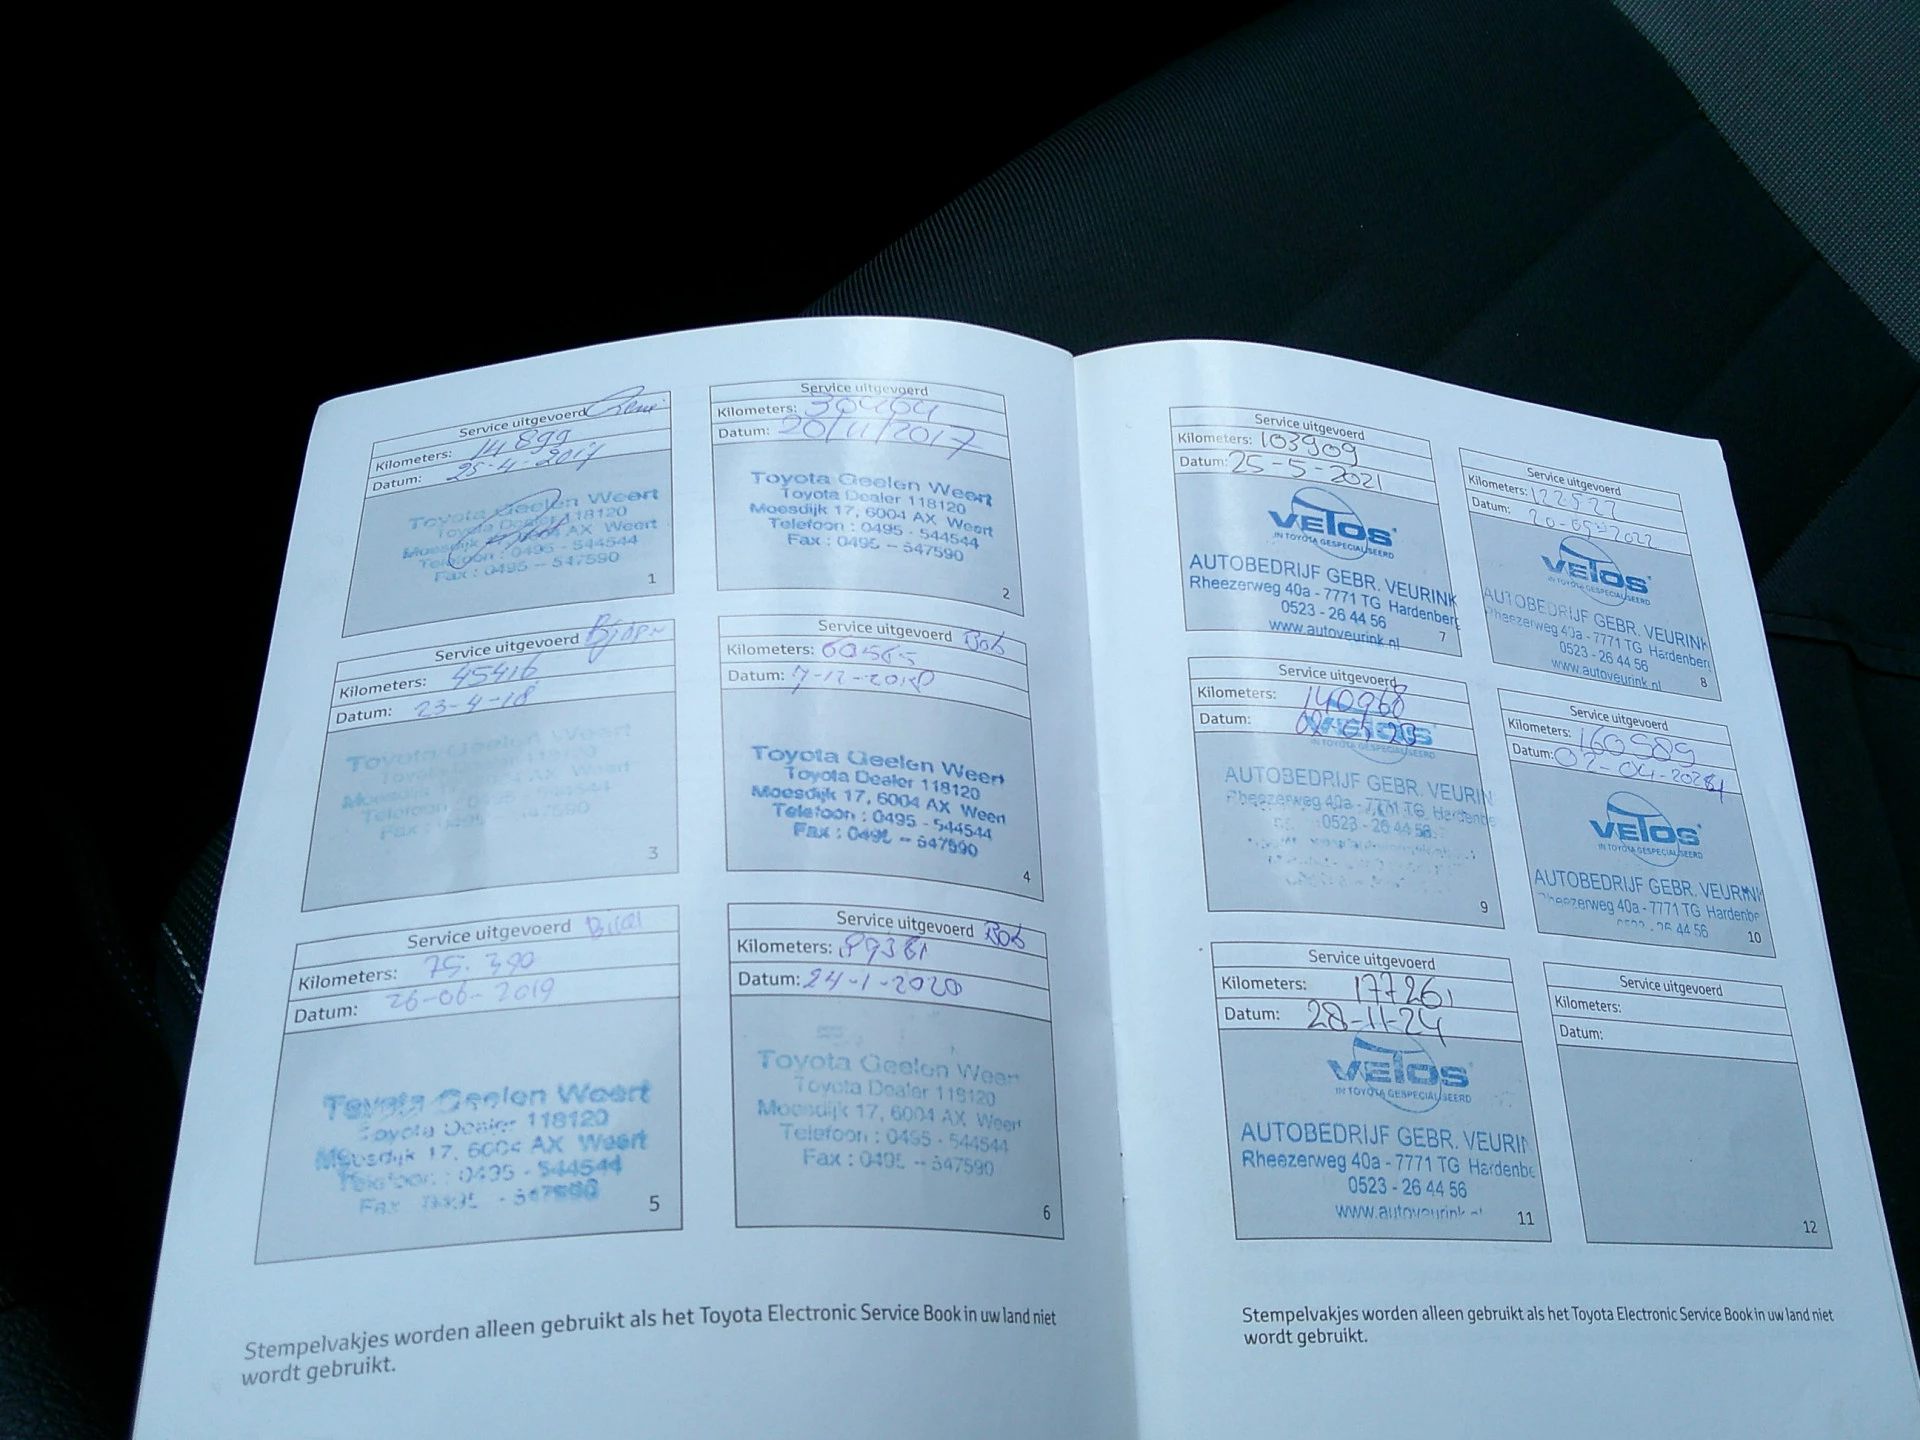 Service uitgevoerd
Kilometers: 14 899
Datum: 25-4-2017
Toyota Geelen Weert
Toyota Dealer 118120
Moesdijk 17, 6004 AX Weert
Telefoon : 0495 - 544544
Fax : 0495 - 547590
1
Service uitgevoerd
Kilometers: 30464
Datum: 20/11/2017
Toyota Geelen Weert
Toyota Dealer 118120
Moesdijk 17, 6004 AX Weert
Telefoon : 0495 - 544544
Fax : 0495 - 547590
2
Service uitgevoerd Bjorn
Kilometers: 45416
Datum: 23-4-18
Toyota Geelen Weert
Toyota Dealer 118120
Moesdijk 17, 6004 AX Weert
Telefoon : 0495 - 544544
Fax : 0495 - 547590
3
Service uitgevoerd Bob
Kilometers: 60565
Datum: 7-12-2018
Toyota Geelen Weert
Toyota Dealer 118120
Moesdijk 17, 6004 AX Weert
Telefoon : 0495 - 544544
Fax : 0495 - 547590
4
Service uitgevoerd
Kilometers: 75.390
Datum: 26-06-2019
Toyota Geelen Weert
Toyota Dealer 118120
Moesdijk 17, 6004 AX Weert
Telefoon : 0495 - 544544
Fax : 0495 - 547590
5
Service uitgevoerd Bob
Kilometers: 89361
Datum: 24-1-2020
Toyota Geelen Weert
Toyota Dealer 118120
Moesdijk 17, 6004 AX Weert
Telefoon : 0495 - 544544
Fax : 0495 - 547590
6
Stempelvakjes worden alleen gebruikt als het Toyota Electronic Service Book in uw land niet
wordt gebruikt.
Service uitgevoerd
Kilometers: 103909
Datum: 25-5-2021
VETOS
IN TOYOTA GESPECIALISEERD
AUTOBEDRIJF GEBR. VEURINK
Rheezerweg 40a - 7771 TG Hardenberg
0523 - 26 44 56
www.autoveurink.nl
7
Service uitgevoerd
Kilometers: 122527
Datum: 20-05-2022
VETOS
IN TOYOTA GESPECIALISEERD
AUTOBEDRIJF GEBR. VEURINK
Rheezerweg 40a - 7771 TG Hardenberg
0523 - 26 44 56
www.autoveurink.nl
8
Service uitgevoerd
Kilometers: 140968
Datum:
VETOS
AUTOBEDRIJF GEBR. VEURIN
Rheezerweg 40a - 7771 TG Hardenbe
0523 - 26 44 56
9
Service uitgevoerd
Kilometers: 160589
Datum: 02-04-2024
VETOS
IN TOYOTA GESPECIALISEERD
AUTOBEDRIJF GEBR. VEURINK
Rheezerweg 40a - 7771 TG Hardenbe
0523 - 26 44 56
10
Service uitgevoerd
Kilometers: 177261
Datum: 28-11-24
VETOS
IN TOYOTA GESPECIALISEERD
AUTOBEDRIJF GEBR. VEURIN
Rheezerweg 40a - 7771 TG Hardenbe
0523 - 26 44 56
www.autoveurink.nl
11
Service uitgevoerd
Kilometers:
Datum:
12
Stempelvakjes worden alleen gebruikt als het Toyota Electronic Service Book in uw land niet
wordt gebruikt.